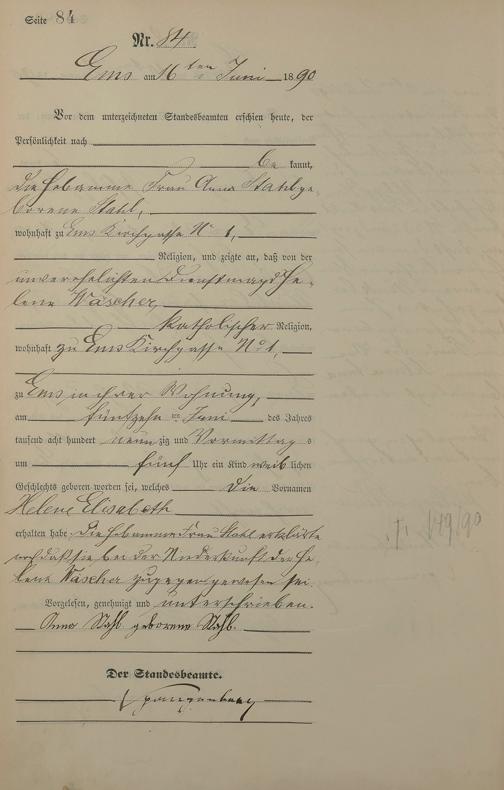 Seite 84
Nr. 84.
Ems am 16ten Juni 1890
Vor dem unterzeichneten Standesbeamten erschien heute, der
Persönlichkeit nach
be kannt,
die Hebamme Frau Anna Stahl ge-
borene Stahl,
wohnhaft zu Ems Kirchgasse No 1,
Religion, und zeigte an, daß von der
unverehelichten Dienstmagd He-
lene Wäscher,
katholischer Religion,
wohnhaft zu Ems Kirchgasse No 1,
zu Ems, in ihrer Wohnung,
am fünfzehnten Juni des Jahres
tausend acht hundert neunzig und Vormittags
um fünf Uhr ein Kind weiblichen
Geschlechts geboren worden sei, welches die Vornamen
Helene Elisabeth
erhalten habe. Die Hebamme Frau Stahl erklärte
noch daß sie bei der Niederkunft der He-
lene Wäscher zugegen gewesen sei.
Vorgelesen, genehmigt und unterschrieben.
Anna Stahl geborene Stahl.
Der Standesbeamte.
149/90